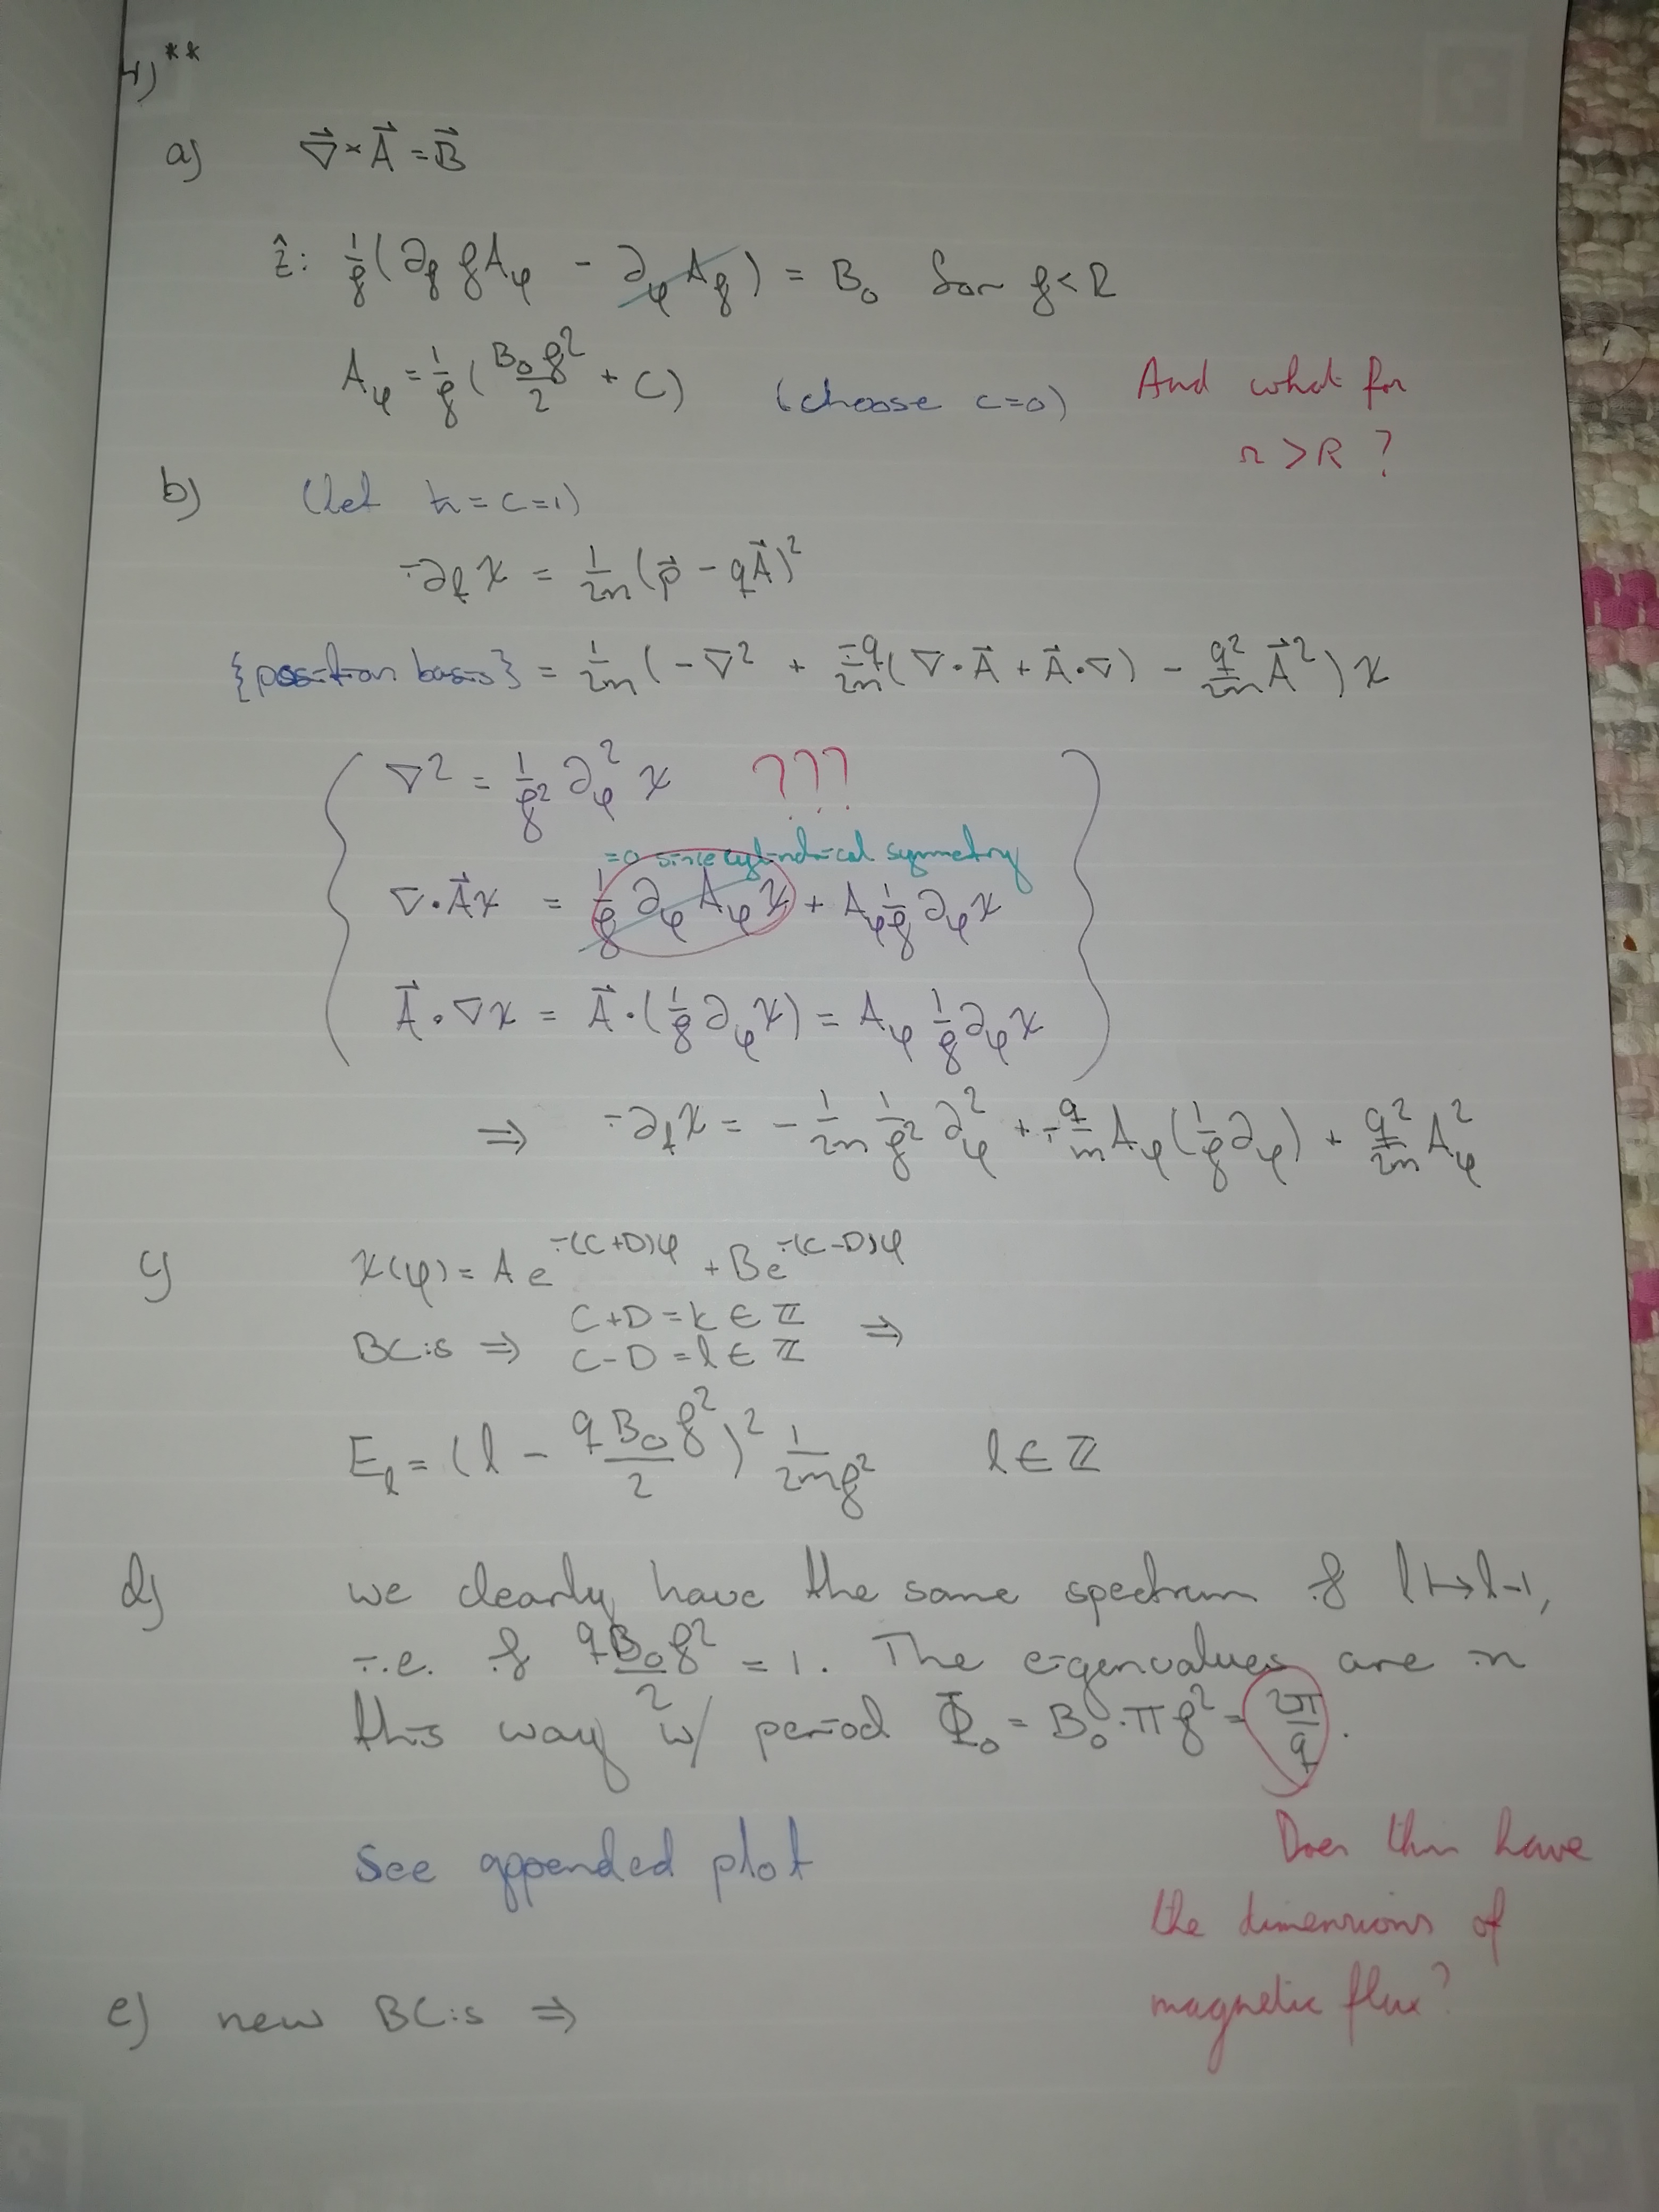 4) **
a) ∇⃗ × A⃗ = B⃗
ẑ: 1/ρ (∂_ρ ρA_φ - ∂_φ A_ρ) = B₀ for ρ<R
A_φ = 1/ρ (B₀ρ²/2 + C) (choose c=0) And what for
r > R ?
b) (let ħ = c = 1)
i∂_t χ = 1/2m (p⃗ - qA⃗)²
{position basis} = 1/2m (-∇² + iq/2m (∇·A⃗ + A⃗·∇) - q²/2m A⃗²) χ
∇² = 1/ρ² ∂_φ² χ ???
=0 since cylindrical symmetry
∇·A⃗χ = 1/ρ ∂_φ A_φ χ + A_φ 1/ρ ∂_φ χ
A⃗·∇χ = A⃗·(1/ρ ∂_φ χ) = A_φ 1/ρ ∂_φ χ
⇒ i∂_t χ = - 1/2m 1/ρ² ∂_φ² + i q/m A_φ (1/ρ ∂_φ) + q²/2m A_φ²
c) χ(φ) = A e^{i(C+D)φ} + B e^{i(C-D)φ}
BC:s ⇒ C+D = k ∈ ℤ ⇒
C-D = l ∈ ℤ
E_l = (l - qB₀ρ²/2)² 1/2mρ² l ∈ ℤ
d) we clearly have the same spectrum if l ↦ l-1,
i.e. if qB₀ρ²/2 = 1. The eigenvalues are in
this way w/ period Φ₀ = B₀·πρ² = 2π/q.
See appended plot
Does this have
the dimensions of
magnetic flux?
e) new BC:s ⇒